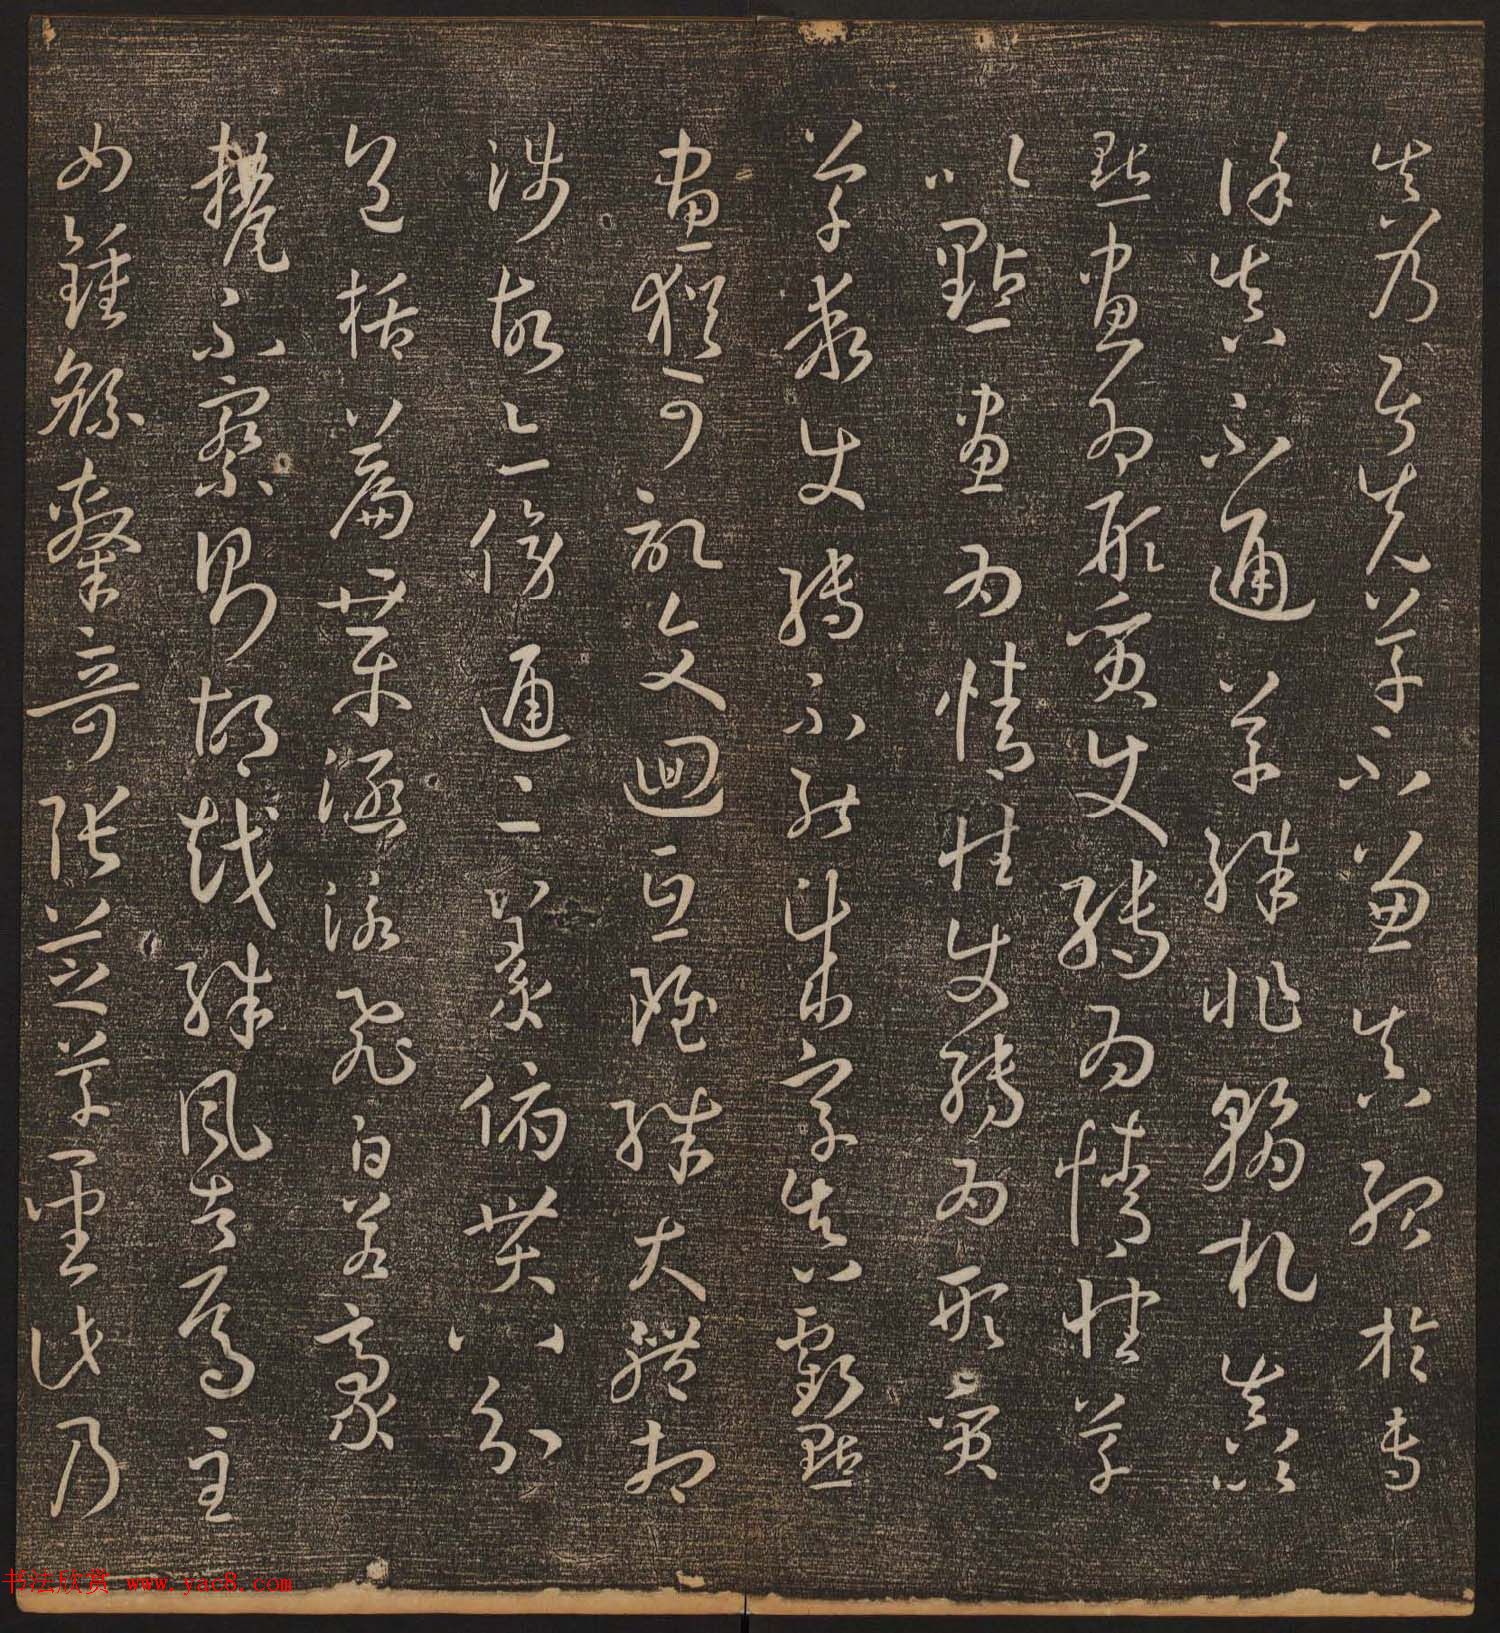 真乃居先草不兼真殆於專
謹真不通草殊非翰札真以
點畫為形質使轉為情性草
以點畫為情性使轉為形質
草乖使轉不能成字真虧點
畫猶可記文迴互雖殊大體相
涉故亦傍通二篆俯貫八分
包括篇章涵泳飛白若毫
釐不察則胡越殊風者焉至
如鍾繇隸奇張芝草聖此乃
书法欣赏 www.yac8.com